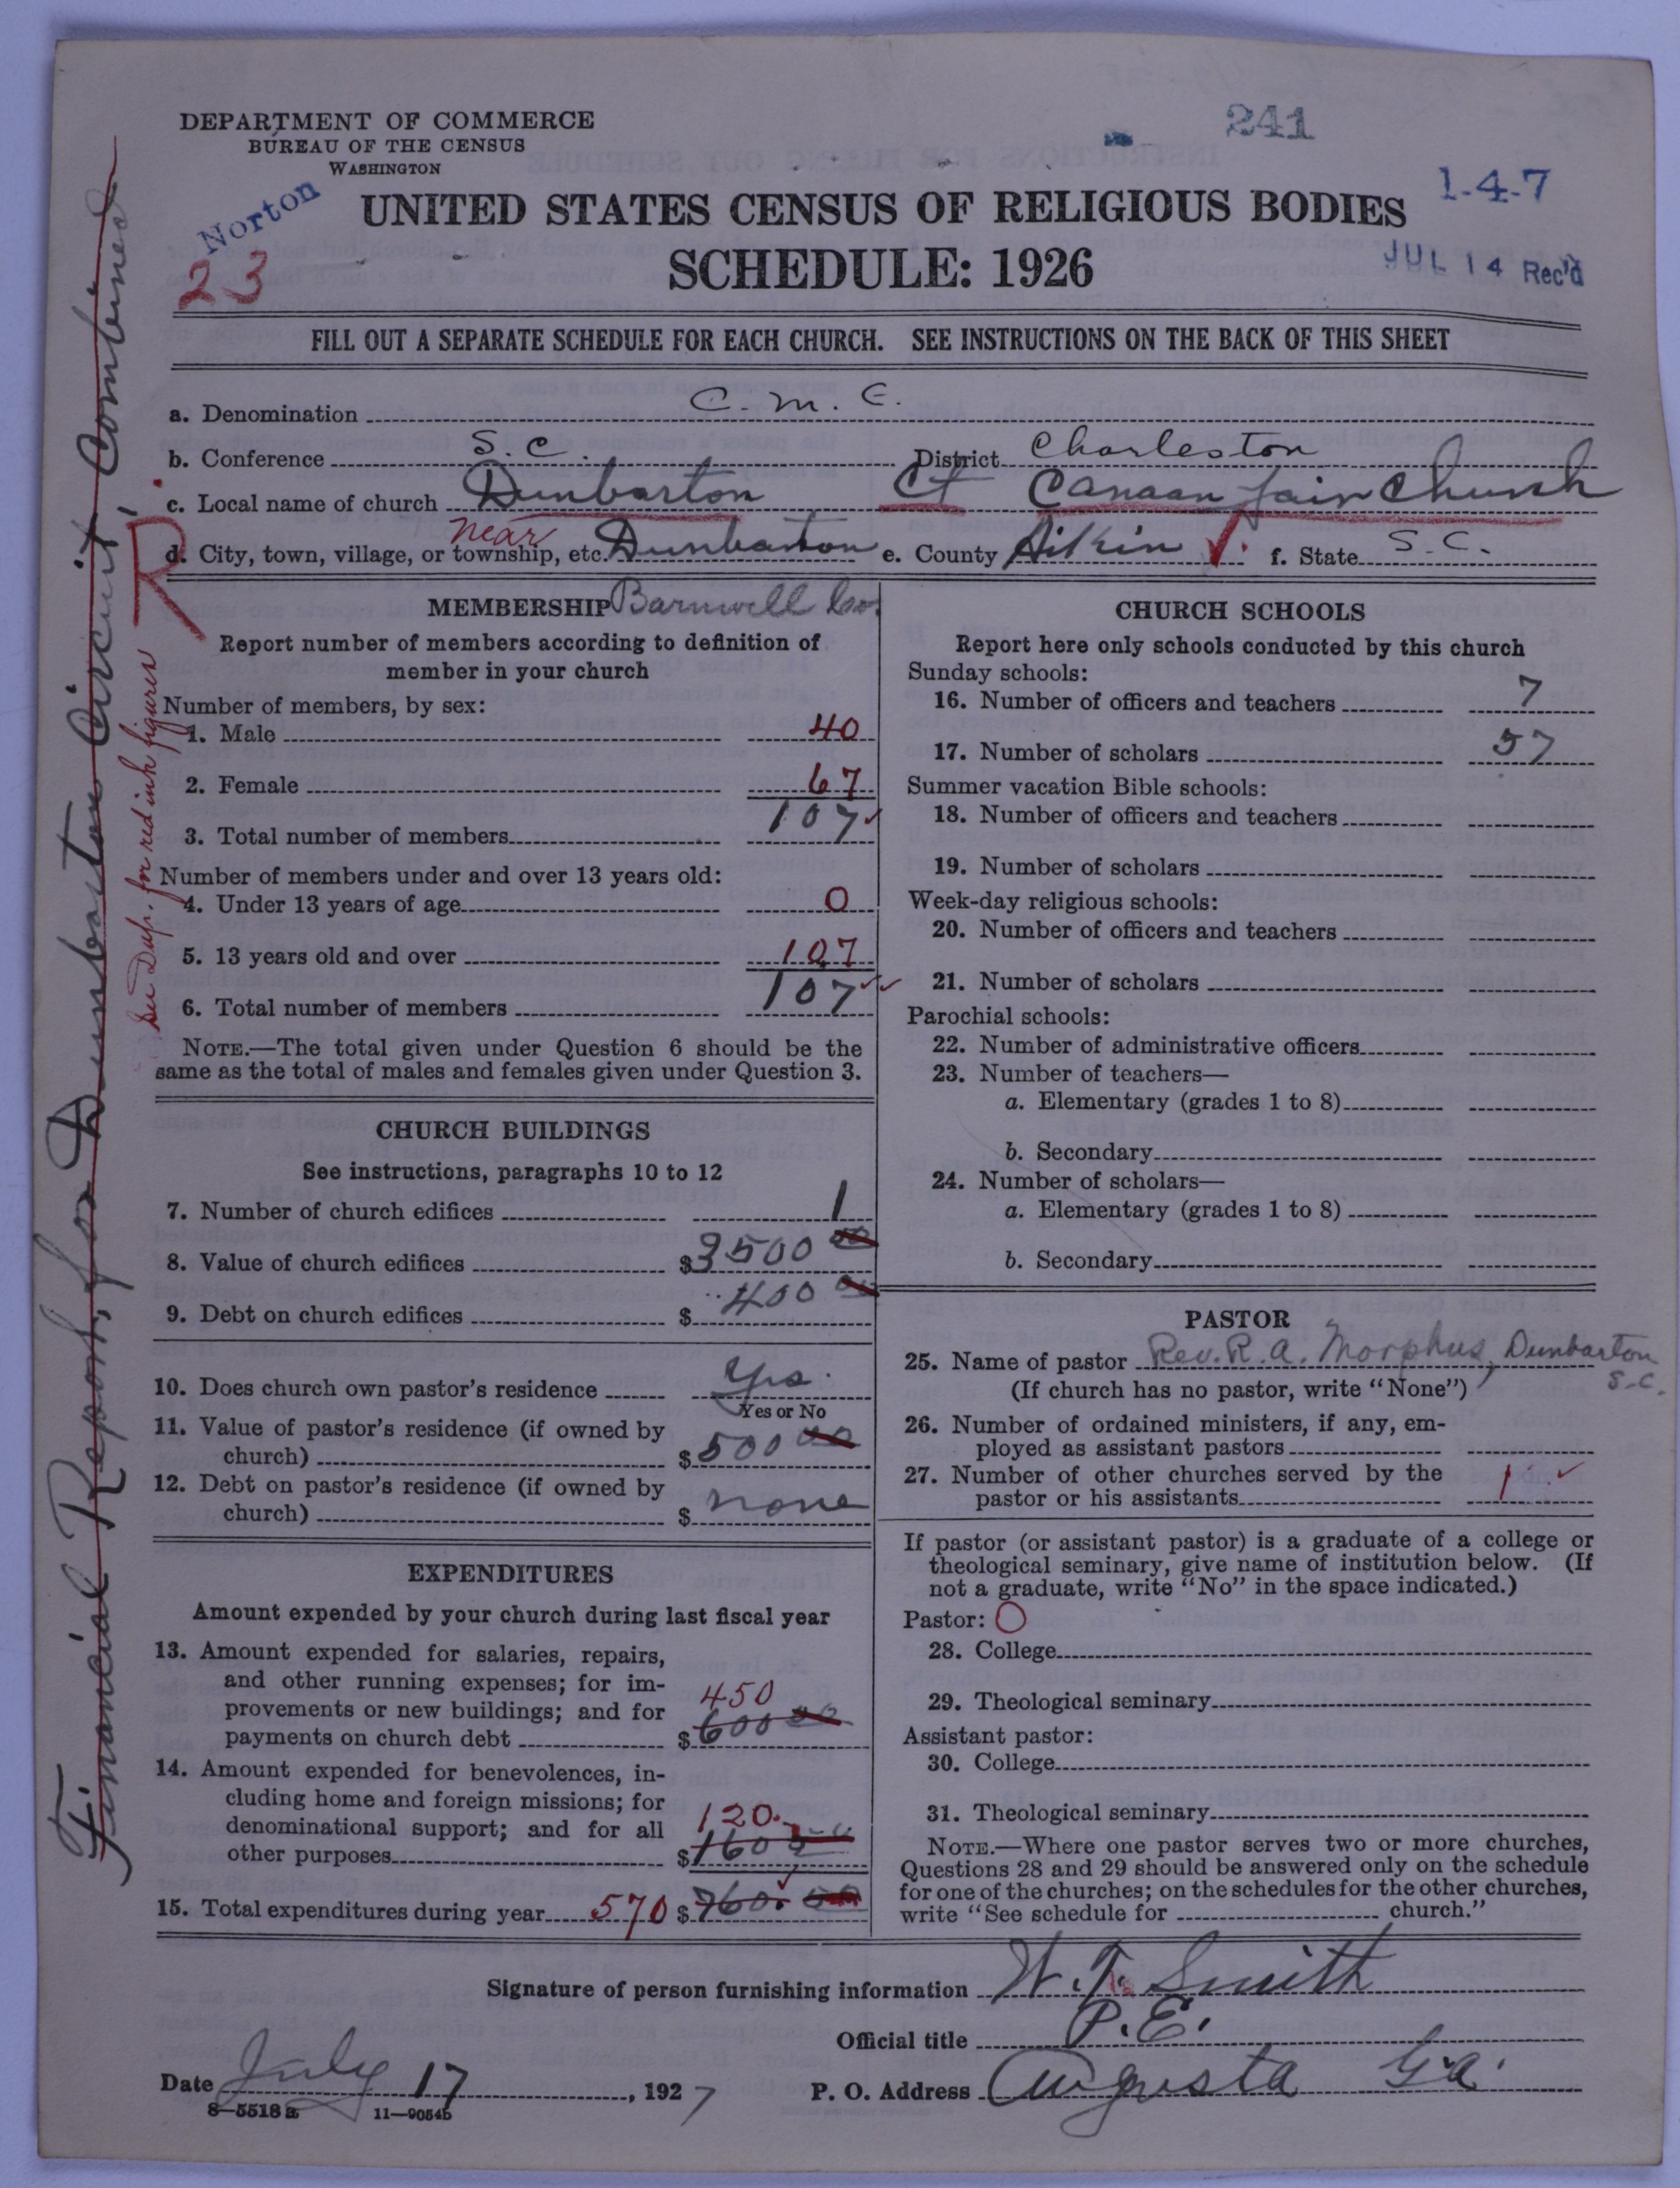 DEPARTMENT OF COMMERCE
BUREAU OF THE CENSUS
WASHINGTON
241
1-4-7
Norton
23
UNITED STATES CENSUS OF RELIGIOUS BODIES
SCHEDULE: 1926
JUL 14 Rec'd
FILL OUT A SEPARATE SCHEDULE FOR EACH CHURCH. SEE INSTRUCTIONS ON THE BACK OF THIS SHEET
a. Denomination C. M. E.
b. Conference S. C. District Charleston
c. Local name of church Dunbarton Ct Canaan Fair Church
d. City, town, village, or township, etc. near Dunbarton e. County Aikin f. State S. C.
R
Financial Report, for Dunbarton Circuit, Combined
See Dup. for red ink figures
MEMBERSHIP Barnwell Co.
Report number of members according to definition of
member in your church
Number of members, by sex:
1. Male 40
2. Female 67
3. Total number of members 107
Number of members under and over 13 years old:
4. Under 13 years of age 0
5. 13 years old and over 107
6. Total number of members 107
NOTE.—The total given under Question 6 should be the
same as the total of males and females given under Question 3.
CHURCH BUILDINGS
See instructions, paragraphs 10 to 12
7. Number of church edifices 1
8. Value of church edifices $3500 00
9. Debt on church edifices $400 00
10. Does church own pastor's residence Yes
Yes or No
11. Value of pastor's residence (if owned by
church) $500 00
12. Debt on pastor's residence (if owned by
church) $none
EXPENDITURES
Amount expended by your church during last fiscal year
13. Amount expended for salaries, repairs,
and other running expenses; for im-
provements or new buildings; and for 450
payments on church debt $600 00
14. Amount expended for benevolences, in-
cluding home and foreign missions; for
denominational support; and for all 120
other purposes $160
15. Total expenditures during year 570 $760
CHURCH SCHOOLS
Report here only schools conducted by this church
Sunday schools:
16. Number of officers and teachers 7
17. Number of scholars 57
Summer vacation Bible schools:
18. Number of officers and teachers
19. Number of scholars
Week-day religious schools:
20. Number of officers and teachers
21. Number of scholars
Parochial schools:
22. Number of administrative officers
23. Number of teachers—
a. Elementary (grades 1 to 8)
b. Secondary
24. Number of scholars—
a. Elementary (grades 1 to 8)
b. Secondary
PASTOR
25. Name of pastor Rev. R. A. Morphus, Dunbarton
S.C.
(If church has no pastor, write "None")
26. Number of ordained ministers, if any, em-
ployed as assistant pastors
27. Number of other churches served by the
pastor or his assistants 1
If pastor (or assistant pastor) is a graduate of a college or
theological seminary, give name of institution below. (If
not a graduate, write "No" in the space indicated.)
Pastor: O
28. College
29. Theological seminary
Assistant pastor:
30. College
31. Theological seminary
NOTE.—Where one pastor serves two or more churches,
Questions 28 and 29 should be answered only on the schedule
for one of the churches; on the schedules for the other churches,
write "See schedule for church."
Signature of person furnishing information W. T. Smith
Official title P. E.
Date July 17, 1927 P. O. Address Augusta Ga.
8—5518 a 11—9054b